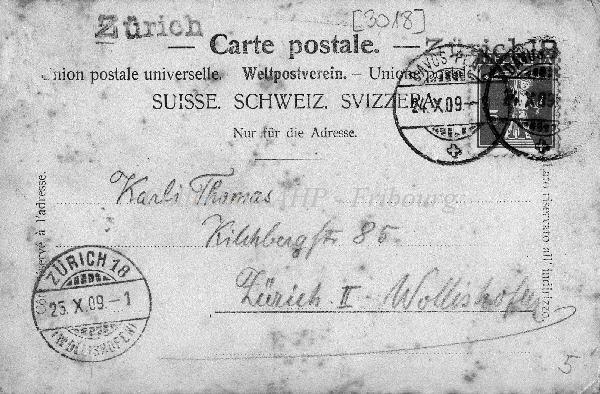 [3018]
Zürich
— Carte postale. — Zürich 18
Union postale universelle. Weltpostverein. — Unione
SUISSE. SCHWEIZ. SVIZZERA.
Nur für die Adresse.
24.X.09
24.X.09
5
Côté réservé à l'adresse.
Lato riservato all'indirizzo.
Karli Thomas
HP - Fribourg
Kilchbergstr 85.
Zürich II - Wollishofen
ZÜRICH 18
25.X.09-1
(WOLLISHOFEN)
5